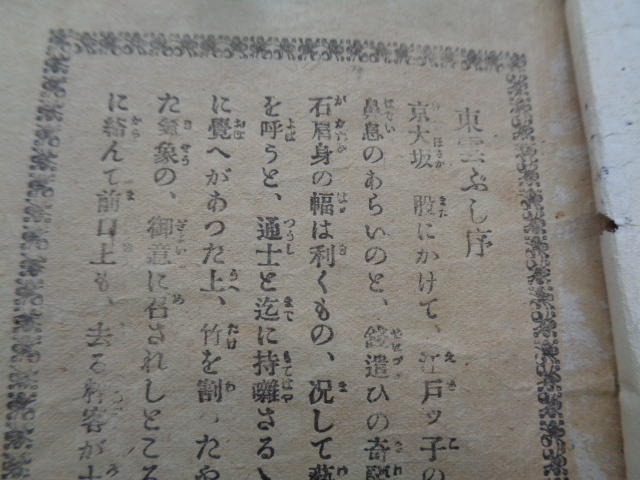 東雲ぶし序
京大坂 股にかけて、江戸ッ子の
鼻息のあらいのと、錢遣ひの奇
石肩身の幅は利くもの、况して藝
を呼うと、通士と迄に持囃さるゝ
に覺へがあつた上、竹を割つたや
た氣象の、御意に召されしところ
に絡んで前口上も、去る粋客が